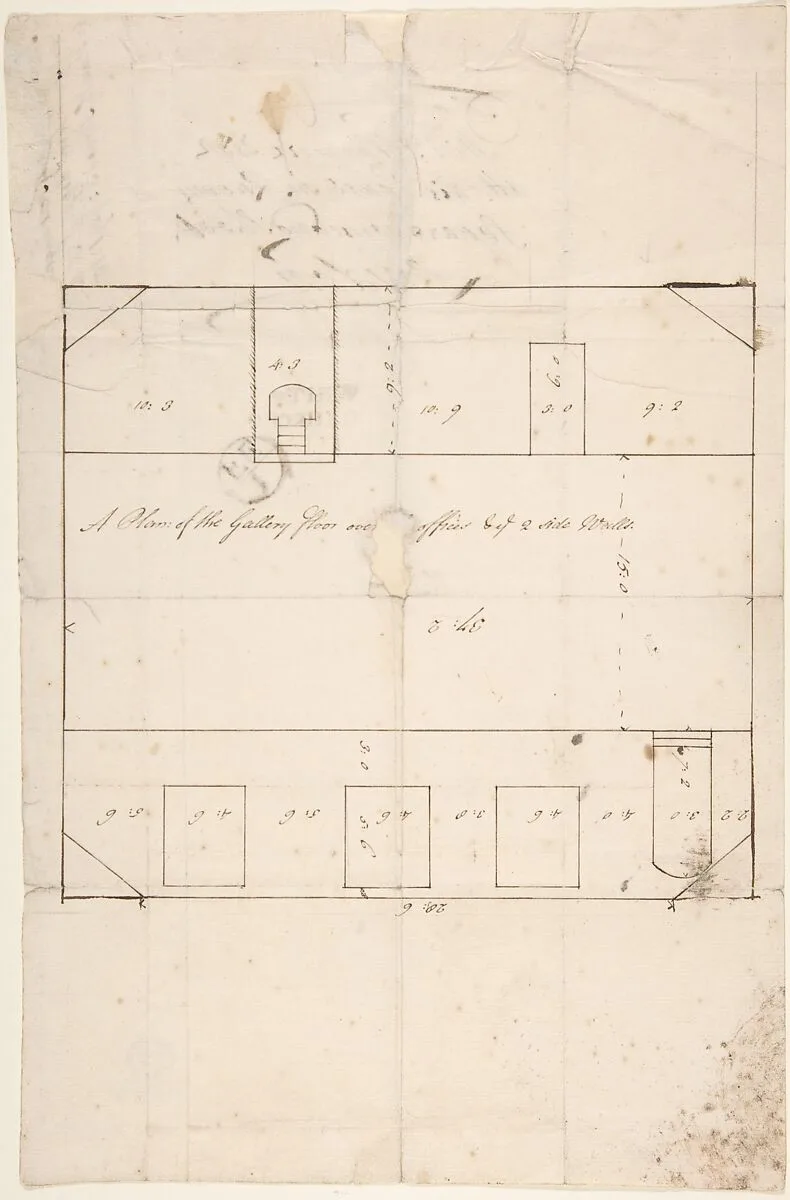 4: 3
9: 2
6: 0
10: 3
10: 9
3: 0
9: 2
A Plan: of the Gallery floor over offices & ye 2 side Walls.
15: 0
37: 2
3: 0
7: 2
5: 6
4: 6
5: 6
4: 6
3: 8
4: 6
4: 0
3: 0
2 2
5: 6
28: 6